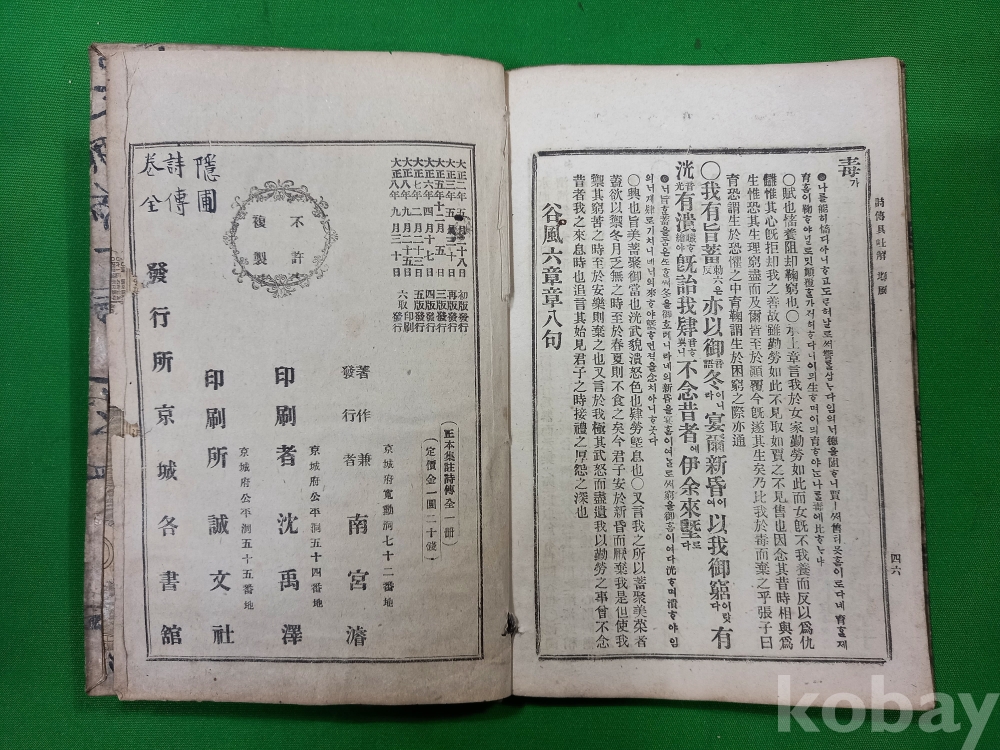 詩傳具吐解 邶風
四六
毒가
育홈이鞫ᄒᆞ야널로밋顚覆홀가저허ᄒᆞ다니이믜生ᄒᆞ며이믜育ᄒᆞ야ᄂᆞᆫ나를毒에比ᄒᆞᄂᆞ냐
○賦也慉養阻却鞫窮也○承上章言我於女家勤勞如此而女旣不我養而反以爲仇
讐惟其心旣拒却我之善故雖勤勞如此不見取如賈之不見售也因念其昔時相與爲
生惟恐其生理窮盡而及爾皆至於顚覆今旣遂其生矣乃比我於毒而棄之乎張子曰
育恐謂生於恐懼之中育鞫謂生於困窮之際亦通
○我有旨蓄勅六反은亦以御音語冬이니라宴爾新昏이여以我御窮이랏다有
洸音光有潰音繪ᄒᆞ야旣詒我肄音異ᄒᆞ니不念昔者에伊余來墍로다
○興也旨美蓄聚御當也洸武貌潰怒色也肄勞墍息也○又言我之所以蓄聚美菜者
蓋欲以禦冬月乏無之時至於春夏則不食之矣今君子安於新昏而厭棄我是但使我
禦其窮苦之時至於安樂則棄之也又言於我極其武怒而盡遺我以勤勞之事曾不念
昔者我之來息時也追言其始見君子之時接禮之厚怨之深也
谷風六章章八句
大正二年五月二十八日 初版發行
再版發行
三版發行
大正六年四月十七日 四版發行
大正七年二月二十三日 五版發行
大正八年九月二十五日 六版印刷
大正八年九月三十日 六版發行
(正本集註詩傳全一册)
(定價金一圓二十錢)
不許複製
京城府寬勳洞七十二番地
著作兼發行者 南宮濬
京城府公平洞五十四番地
印刷者 沈禹澤
京城府公平洞五十五番地
印刷所 誠文社
發行所 京城各書舘
隱圃
詩傳
卷全
kobay